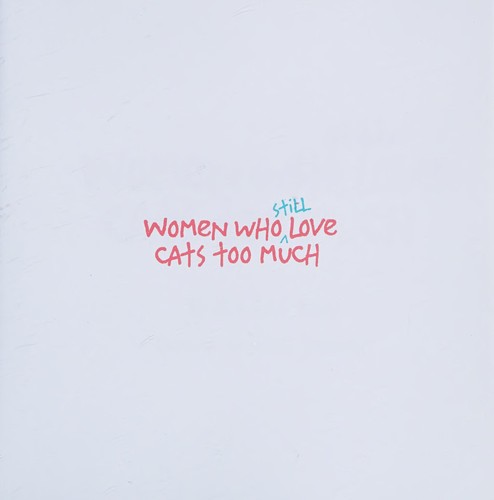 WOMEN WHO still LOVE
CATS TOO MUCH